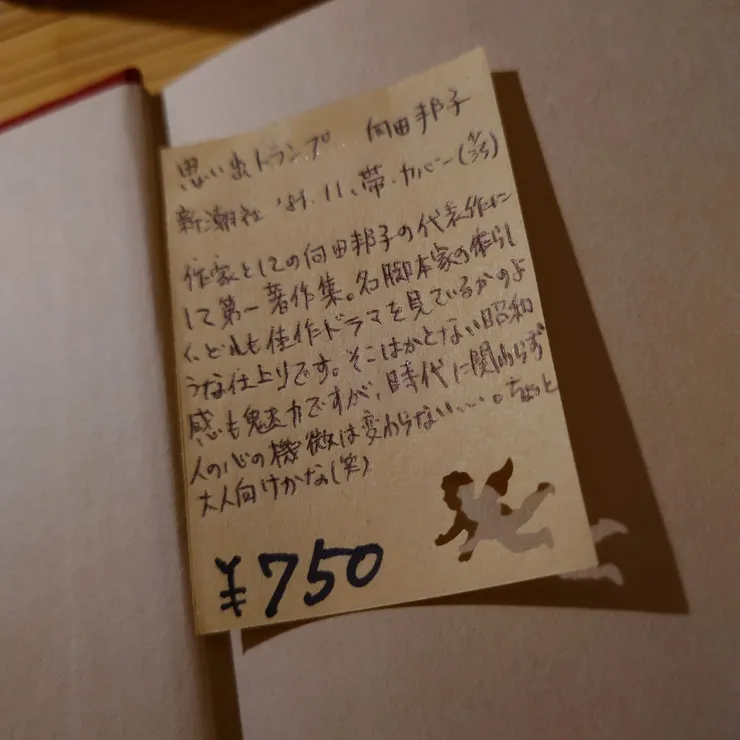 思い出トランプ 向田邦子
新潮社 '81.11、帯・カバー
作家としての向田邦子の代表作に
して第一著作集。名脚本家の作らし
く、どれも佳作ドラマを見ているかのよ
うな仕上りです。そこはかとない昭和
感も魅力ですが、時代に関わらず
人の心の機微は変わらない…。ちょっと
大人向けかな(笑)
¥750